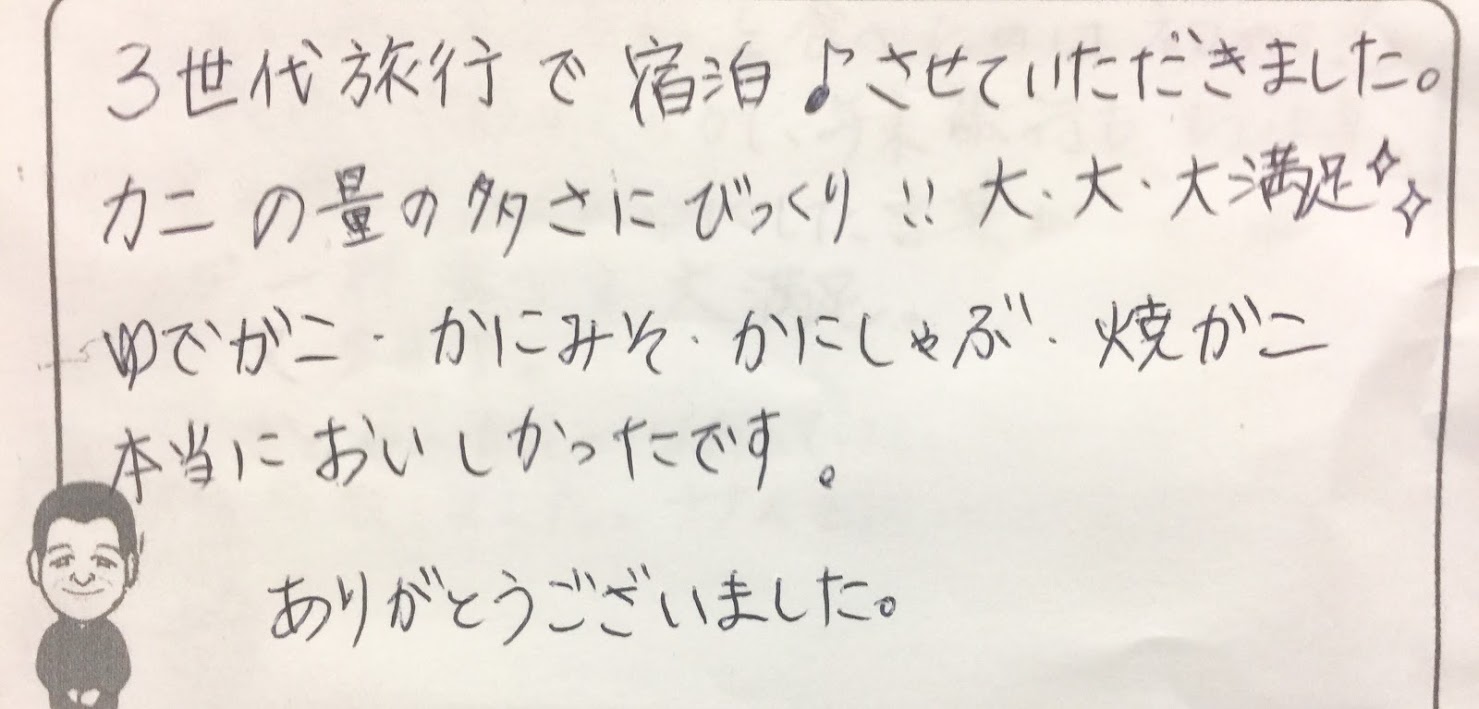 3世代旅行で宿泊♪させていただきました。
カニの量の多さにびっくり!! 大・大・大満足✧✧
ゆでがニ・かにみそ・かにしゃぶ・焼がニ
本当においしかったです。
ありがとうございました。